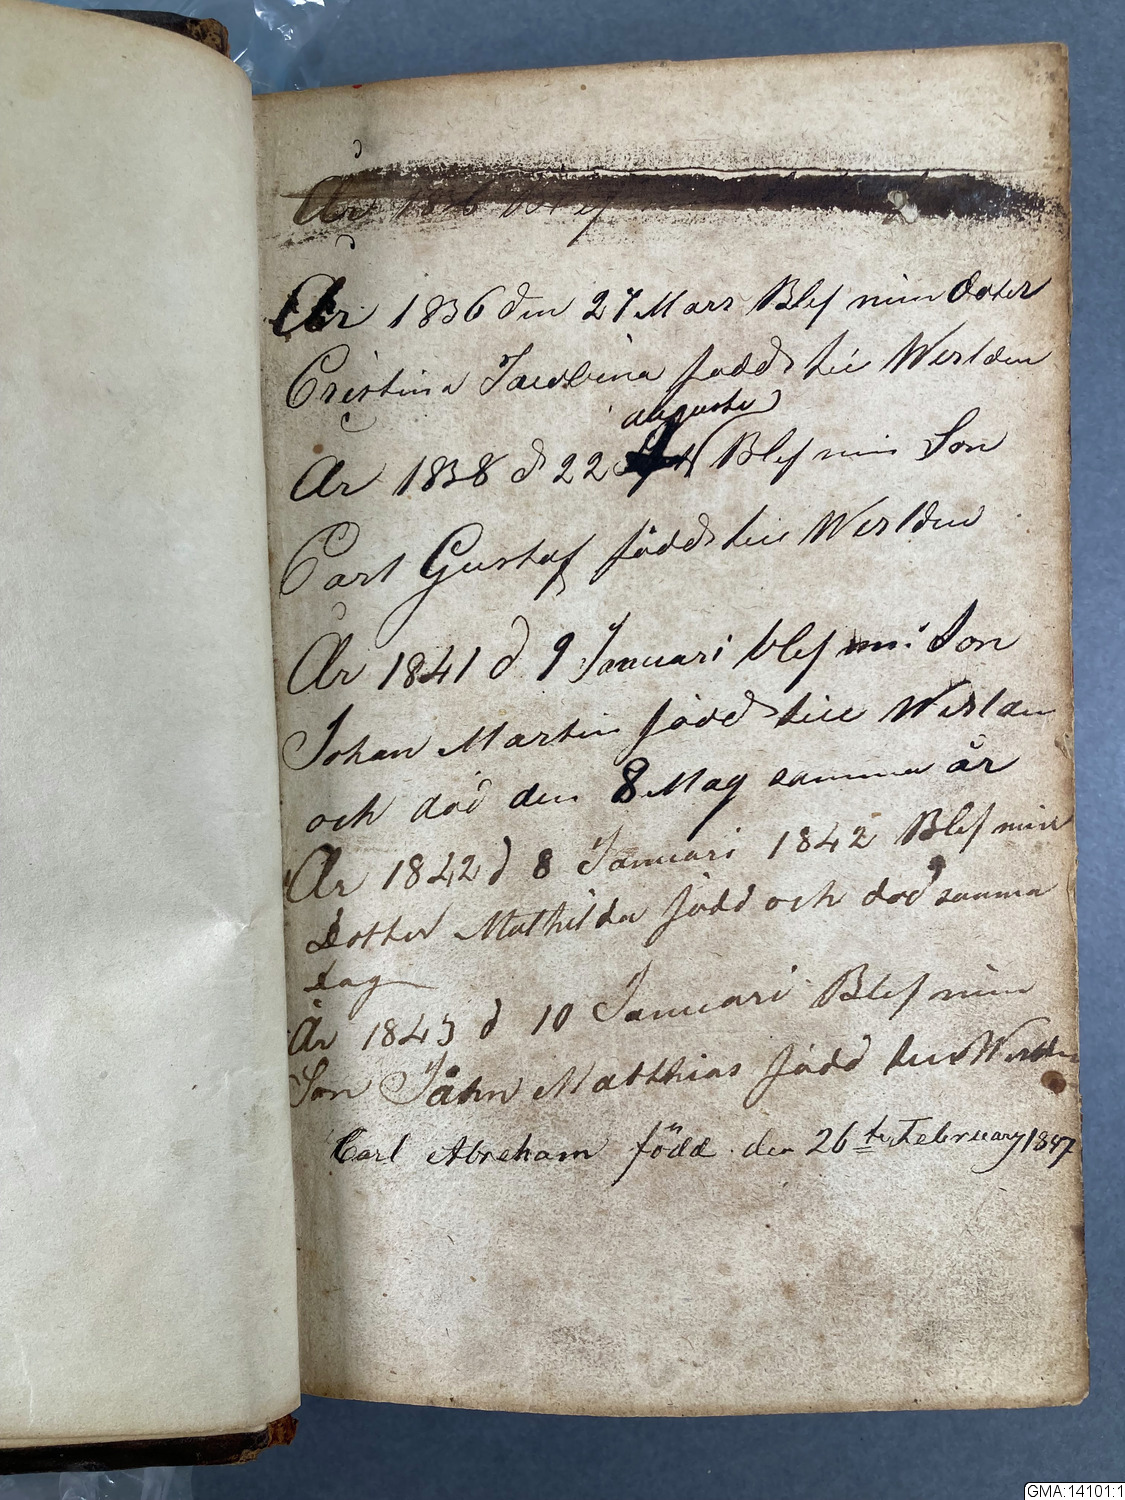 År 1836
År 1836 den 27 Mars Blef min Doter
Cristina Jacobina född till Werlden
augusti
År 1838 d 22 Blef min Son
Carl Gustaf född till Werlden
År 1841 d 9 Januari blef min Son
Johan Martin född till Werlden
och död den 8 May samma år
År 1842 d 8 Januari 1842 Blef min
Dotter Mathilda född och död samma
dag
År 1843 d 10 Januari Blef min
Son Jåhn Matthias född till Werlden
Carl Abreham född den 26th February 1847
GMA:14101:1